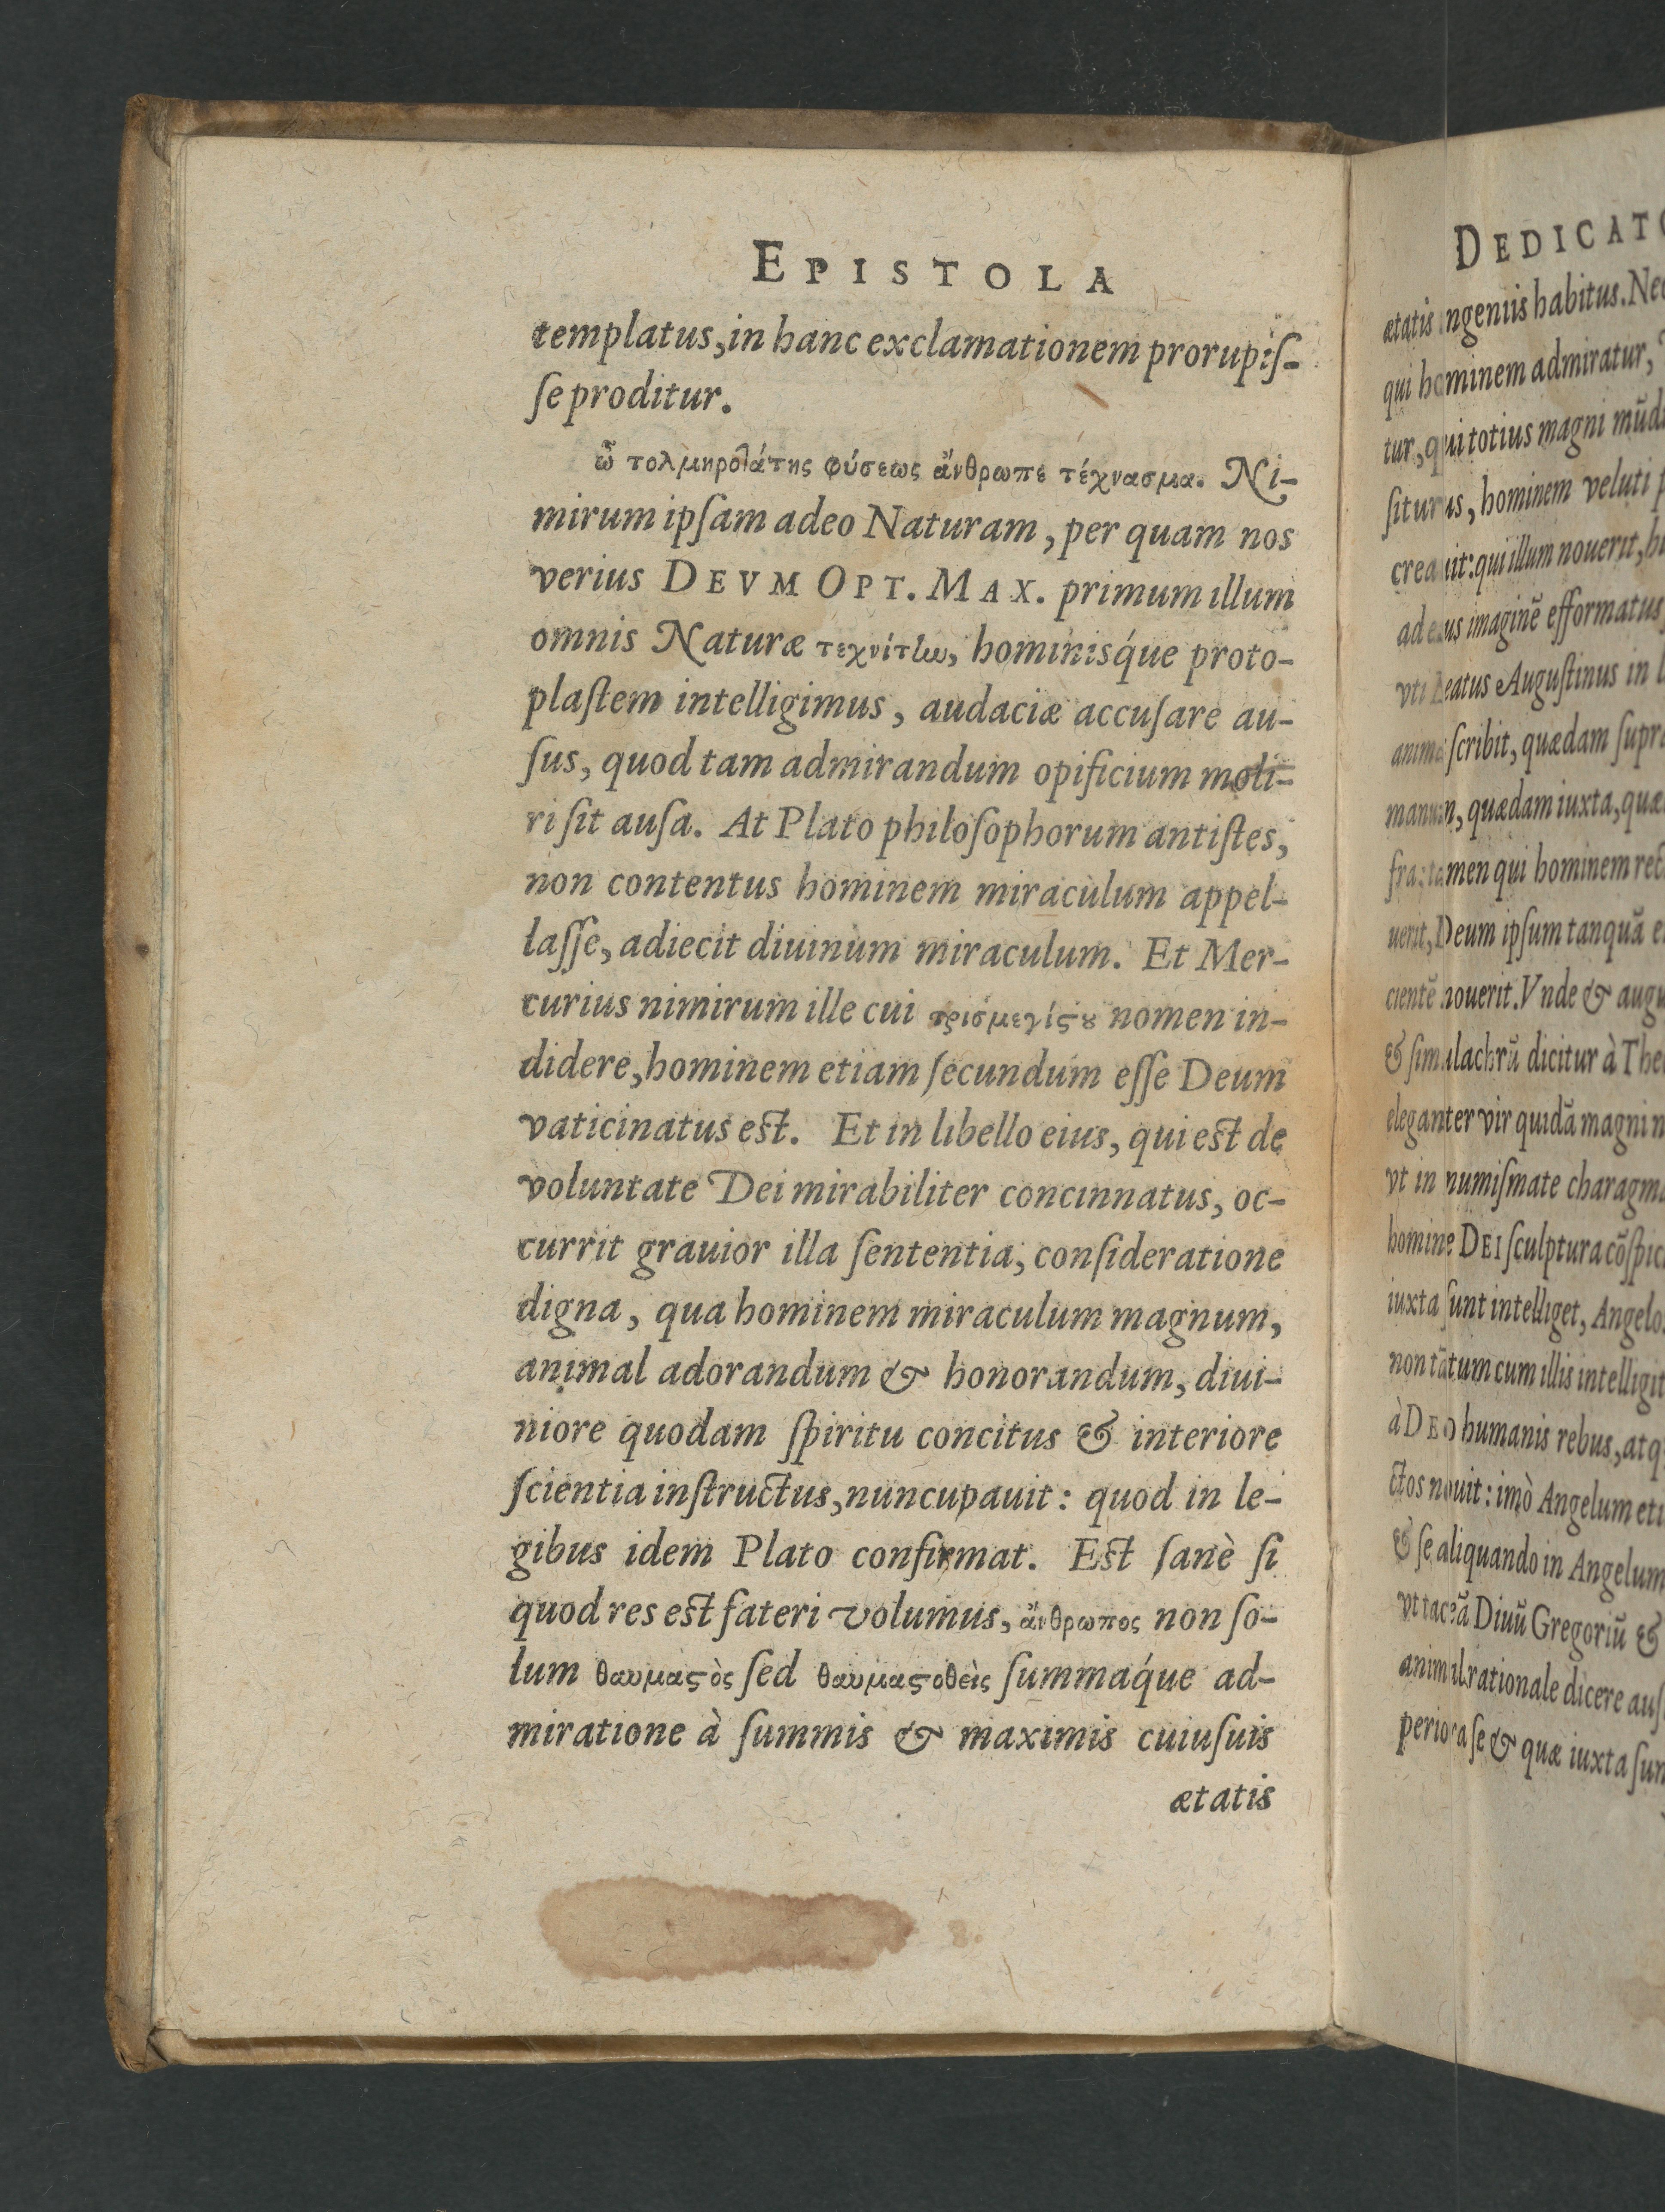 EPISTOLA
templatus, in hanc exclamationem prorupiſ-
ſe proditur.
ὦ τολμηροτάτης φύσεως ἄνθρωπε τέχνασμα. Ni-
mirum ipſam adeo Naturam, per quam nos
verius DEVM OPT. MAX. primum illum
omnis Naturæ τεχνίτην, hominisq́ue proto-
plaſtem intelligimus, audaciæ accuſare au-
ſus, quod tam admirandum opificium moli-
ri ſit auſa. At Plato philoſophorum antiſtes,
non contentus hominem miraculum appel-
laſſe, adiecit diuinum miraculum. Et Mer-
curius nimirum ille cui τρισμεγίϛȣ nomen in-
didere, hominem etiam ſecundum eſſe Deum
vaticinatus eſt. Et in libello eius, qui eſt de
voluntate Dei mirabiliter concinnatus, oc-
currit grauior illa ſententia, conſideratione
digna, qua hominem miraculum magnum,
animal adorandum & honorandum, diui-
niore quodam ſpiritu concitus & interiore
ſcientia inſtructus, nuncupauit: quod in le-
gibus idem Plato confirmat. Eſt ſanè ſi
quod res eſt fateri volumus, ἄνθρωπος non ſo-
lum θαυμαϛὸς ſed θαυμαϛοθεὶς ſummaq́ue ad-
miratione à ſummis & maximis cuiuſuis
ætatis
DEDICATO
ætatis ingeniis habitus. Nec
qui hominem admiratur,
tur, qui totius magni mũdi
ſiturus, hominem veluti
creauit: qui illum nouerit, hu
ad eius imaginẽ efformatus
vti Beatus Auguſtinus in l
anima ſcribit, quædam ſupr
manum, quædam iuxta, quæ
fra: tamen qui hominem rect
uerit, Deum ipſum tanquã e
cientẽ nouerit. Vnde & augu
& ſimulachrũ dicitur à The
eleganter vir quidã magni n
vt in numiſmate charagma
homine DEI ſculptura cõſpici
iuxta ſunt intelliget, Angelo
non tãtum cum illis intelligit
à DEO humanis rebus, atq
ctos nouit: imò Angelum eti
& ſe aliquando in Angelum
vt taceã Diuũ Gregoriũ &
animal rationale dicere auſ
periora ſe & quæ iuxta ſun